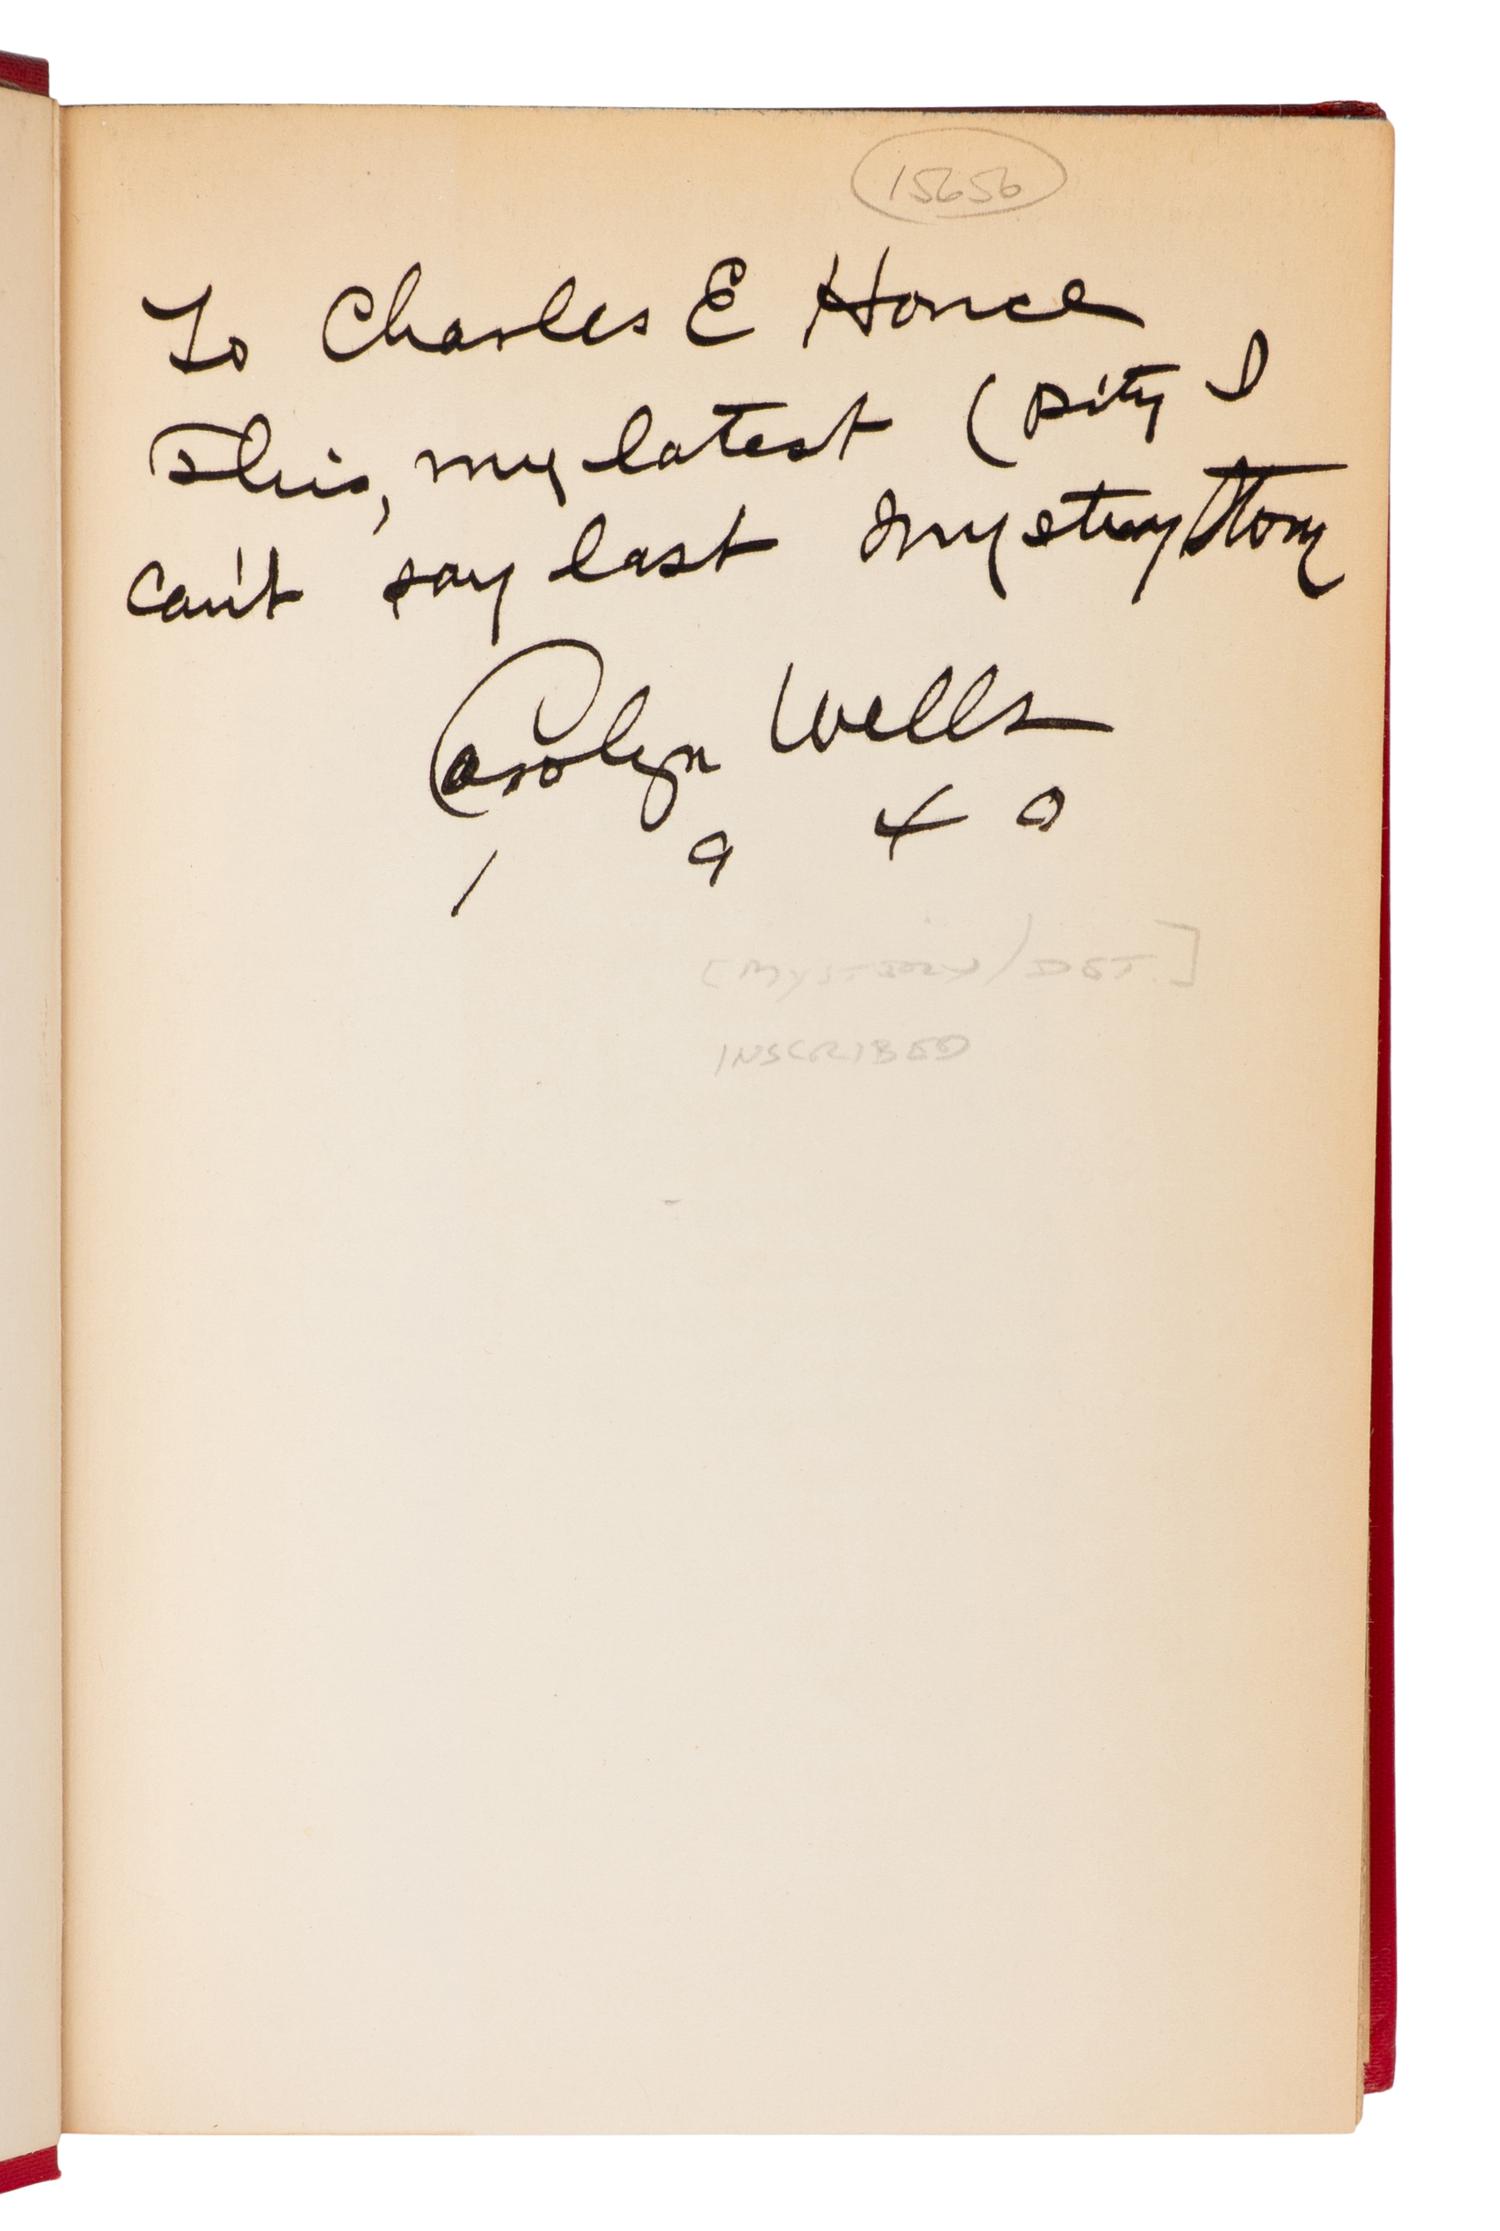 15656
To Charles E Honce
This, my latest (pity I
can't say last mystery story
Carolyn Wells
1 9 4 0
[MYSTERY/DET.]
INSCRIBED